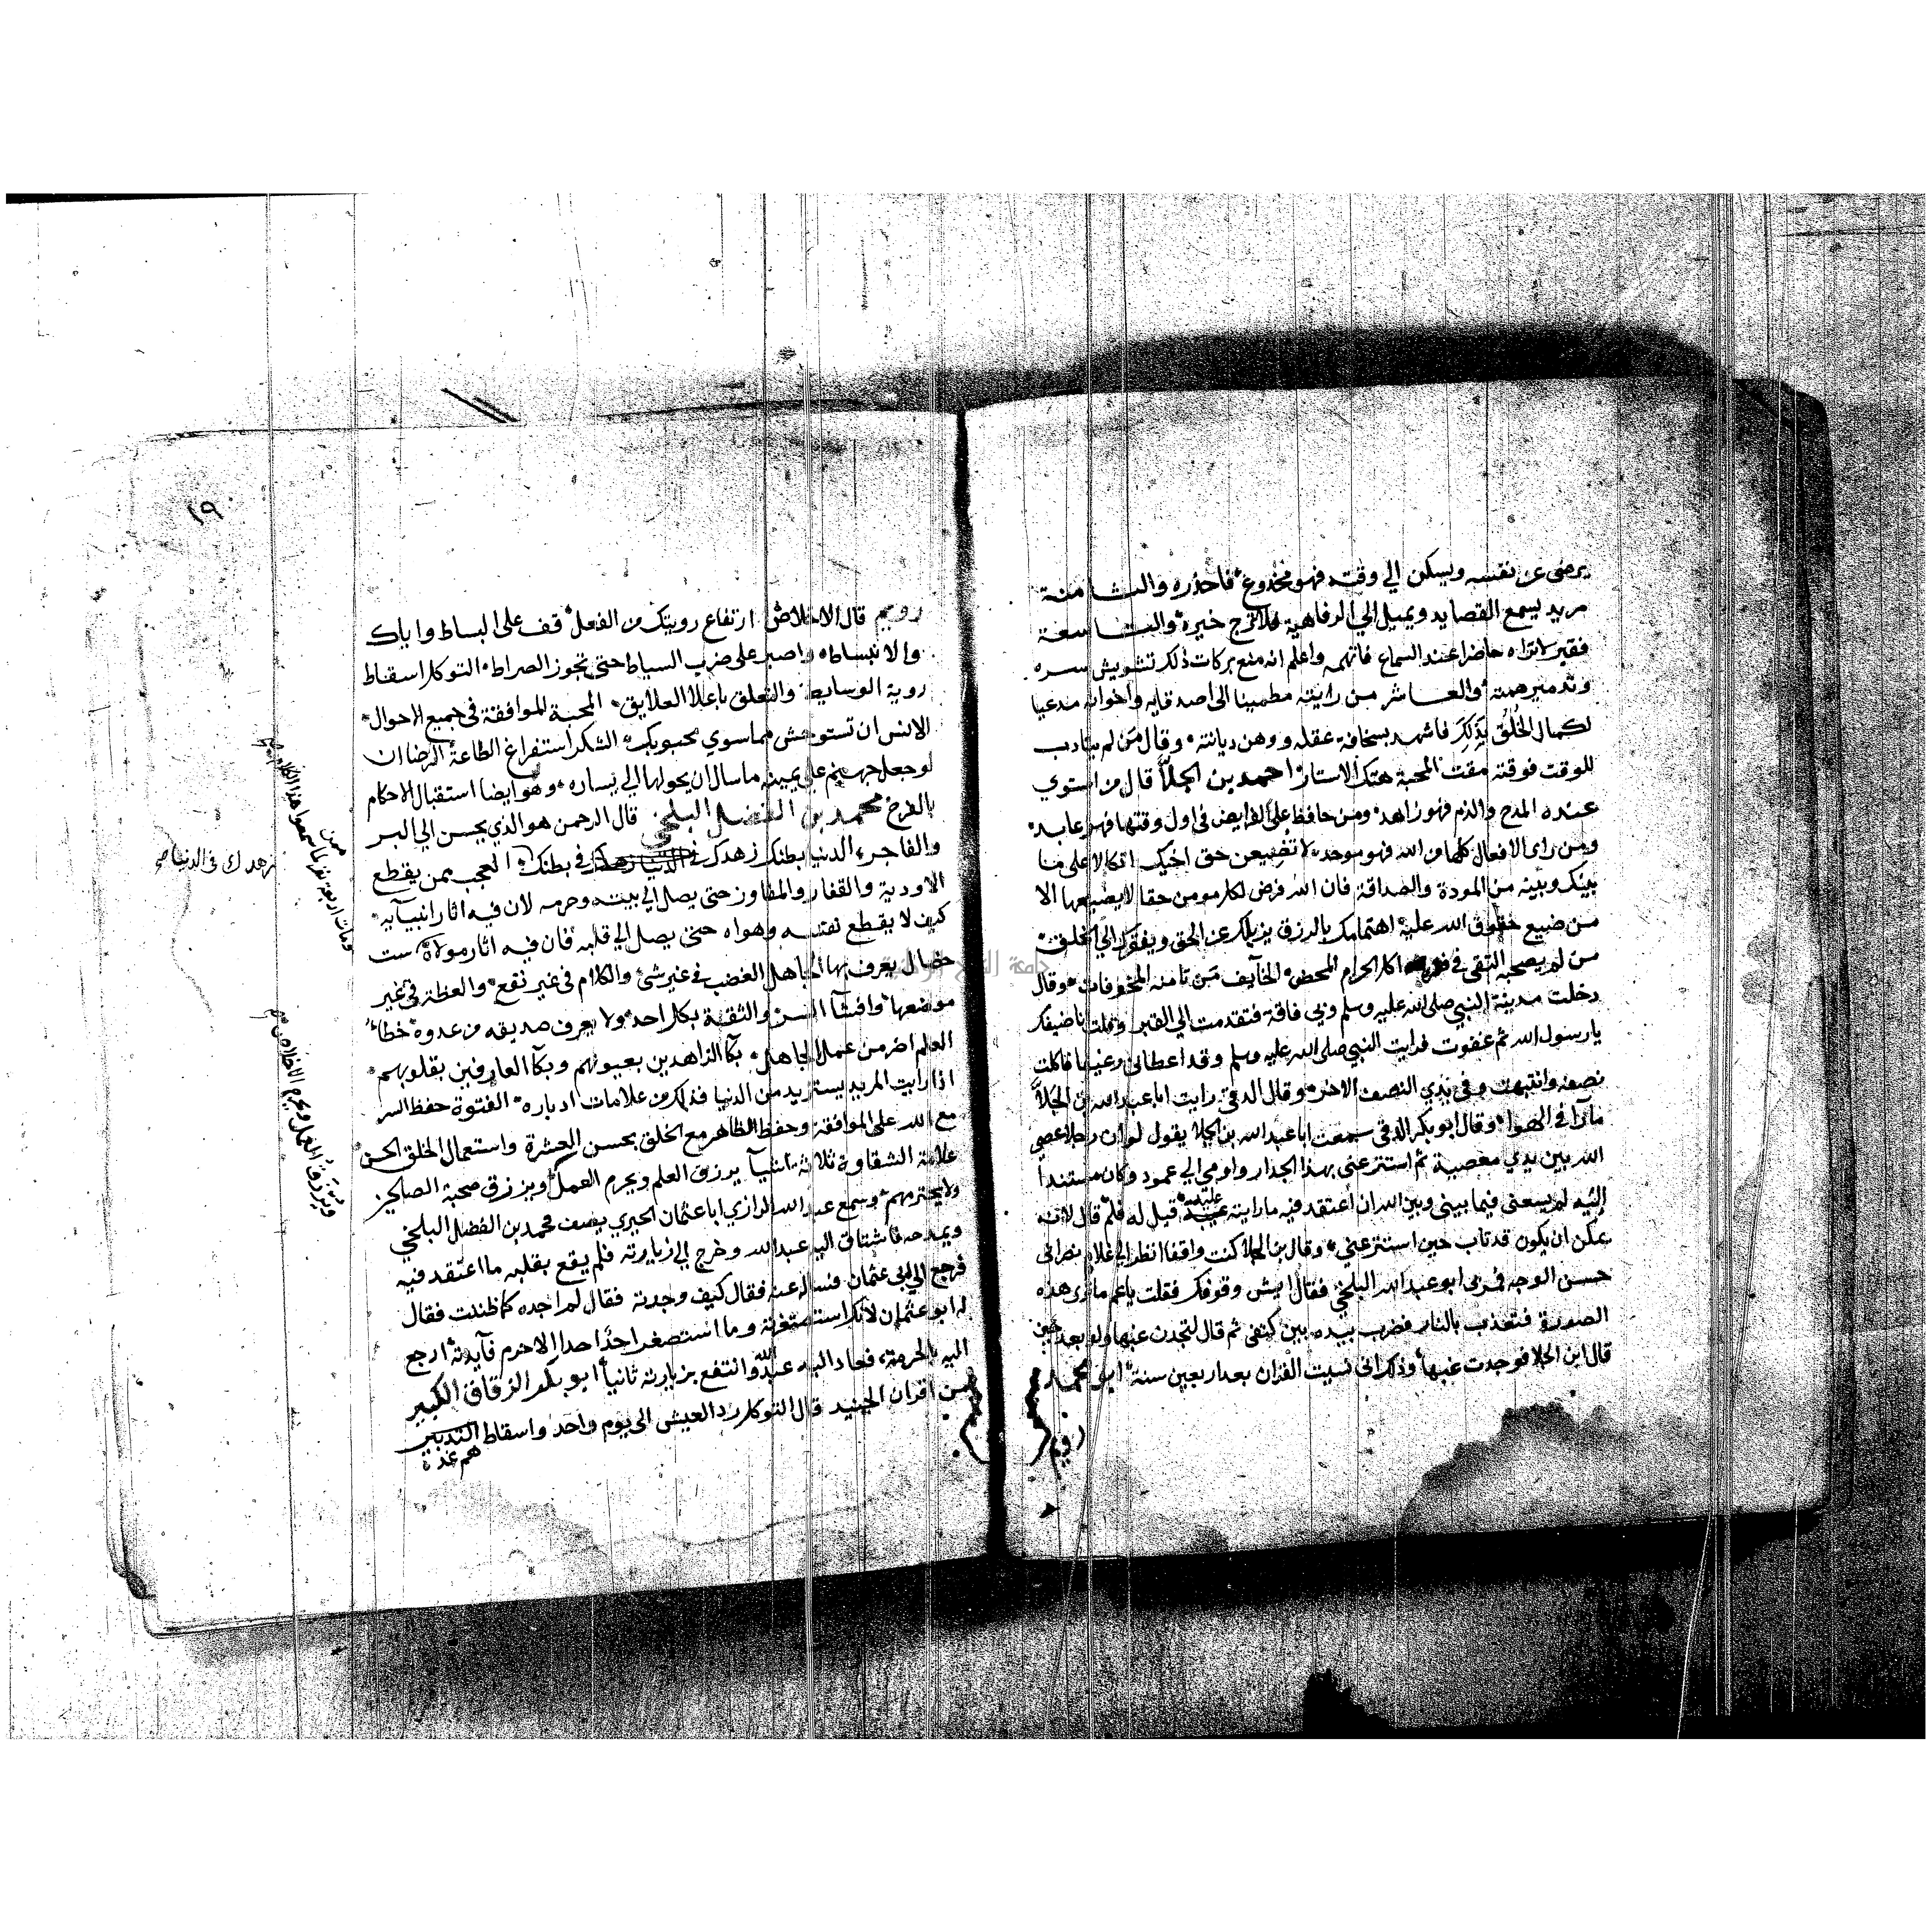 يرضى عن نفسه ويسكن الي وقته فهو مخدوع فاحذره والثامنة
مريد يسمع القصايد ويميل الي الرفاهية فلا ترج خيره والتاسعة
فقير لا تراه حاضرا عند السماع فاتهمه واعلم انه منع بركات ذلك تشويش سره
وتدمير همته والعاشر من رايته مطمينا الى اصدقايه واخوانه مدعيا
لكمال الخُلُق بذلك فاشهد بسخافة عقله ووهن ديانته وقال من لم يتادب
للوقت فوقته مقت المحبة هتك الاستار احمد بن الجلا قال من استوي
عنده المدح والذم فهو زاهد ومن حافظ على الفرايض في اول وقتها فهو عابد
ومن راى الافعال كلها من الله فهو موحد لا تضيعن حق اخيك اتكالا على ما
بينك وبينه من المودة والصداقة فان الله فرض لكل مومن حقا لا يضيعها الا
من ضيع حقوق الله عليه اهتمامك بالرزق يزيلك عن الحق ويفقرك الي الخلق
من لم يصحبه التقى في اكل الحرام المحض الخايف من تامنه المخوفات وقال
دخلت مدينة النبي صلى الله عليه وسلم وبي فاقة فتقدمت الي القبر وقلت انا ضيفك
يا رسول الله ثم غفوت فرايت النبي صلى الله عليه وسلم وقد اعطاني رغيفا فاكلت
نصفه وانتبهت وفي يدي النصف الاخر وقال الدقي رايت ابا عبد الله بن الجلا
مارا في الهوا وقال ابو بكر الدقي سمعت ابا عبد الله بن الجلا يقول لو ان رجلا عصي
الله بين يدي معصية ثم استتر عني بهذا الجدار واومي الي عمود وكان مستندا
اليه لم يسعني فيما بيني وبين الله ان اعتقد فيه ما رايته عليه قيل له فلم قال لانه
يمكن ان يكون قد تاب حين استتر عني وقال بن الجلا كنت واقفا انظر الي غلام نصراني
حسن الوجه فمر بي ابو عبد الله البلخي فقال ايش وقوفك فقلت يا عم ما ترى هذه
الصورة تعذب بالنار فضرب بيده بين كتفي ثم قال لتجدن غبها ولو بعد حين
قال ابن الجلا فوجدت غبها وذكر اني نسيت القران بعد اربعين سنة ابو محمد
رويم
١٩
رويم قال الاخلاص ارتفاع رويتك من الفعل قف على البساط واياك
والانبساط واصبر على ضرب السياط حتى تجوز الصراط التوكل اسقاط
روية الوسايط والتعلق باعلا العلايق المحبة الموافقة في جميع الاحوال
الانس ان تستوحش مما سوي محبوبك الشكر استفراغ الطاعة الرضا ان
لو جعل جهنم على يمينه ما سال ان يحولها الي يساره وهو ايضا استقبال الاحكام
بالفرح محمد بن الفضل البلخي قال الرحمن هو الذي يحسن الي البر
والفاجر الدنيا بطنك زهدك في بطنك العجب ممن يقطع
الاودية والقفار والمفاوز حتى يصل الي بيته وحرمه لان فيه اثار انبيايه
كيف لا يقطع نفسه وهواه حتى يصل الي قلبه فان فيه اثار مولاه ست
خصال يعرف بها الجاهل الغضب في غير شئ والكلام في غير نفع والعظة في غير
موضعها وافشا السر والثقة بكل احد ولا يعرف صديقه من عدوه خطا
العلم اضر من عمل الجاهل بكا الزاهدين بعيونهم وبكا العارفين بقلوبهم
اذا رايت المريد يستزيد من الدنيا فذلك من علامات ادباره الفتوة حفظ السر
مع الله على الموافقة وحفظ الظاهر مع الخلق بحسن العشرة واستعمال الخلق الحسن
علامة الشقاوة ثلاثة اشيا يرزق العلم ويحرم العمل ويرزق صحبة الصالحين
ولا يحترمهم وسمع عبد الله الرازي ابا عثمان الحيري يصف محمد بن الفضل البلخي
ويمدحه فاشتاق اليه عبد الله وخرج الي زيارته فلم يقع بقلبه ما اعتقد فيه
فرجع الي ابي عثمان فساله عنه فقال كيف وجدته فقال لم اجده كما ظننت فقال
له ابو عثمان لانك استصغرته وما استصغر احد احدا الا حرم فايدته ارجع
اليه بالحرمة فعاد اليه عبد الله وانتفع بزيارته ثانيا ابو بكر الزقاق الكبير
من اقران الجنيد قال التوكل رد العيش الى يوم واحد واسقاط التدبير
هم غده
زهدك في الدنيا صح
ومات اربعة نفر لما سمعوا هذا الكلام
ويرزق العمل ويحرم الاخلاص